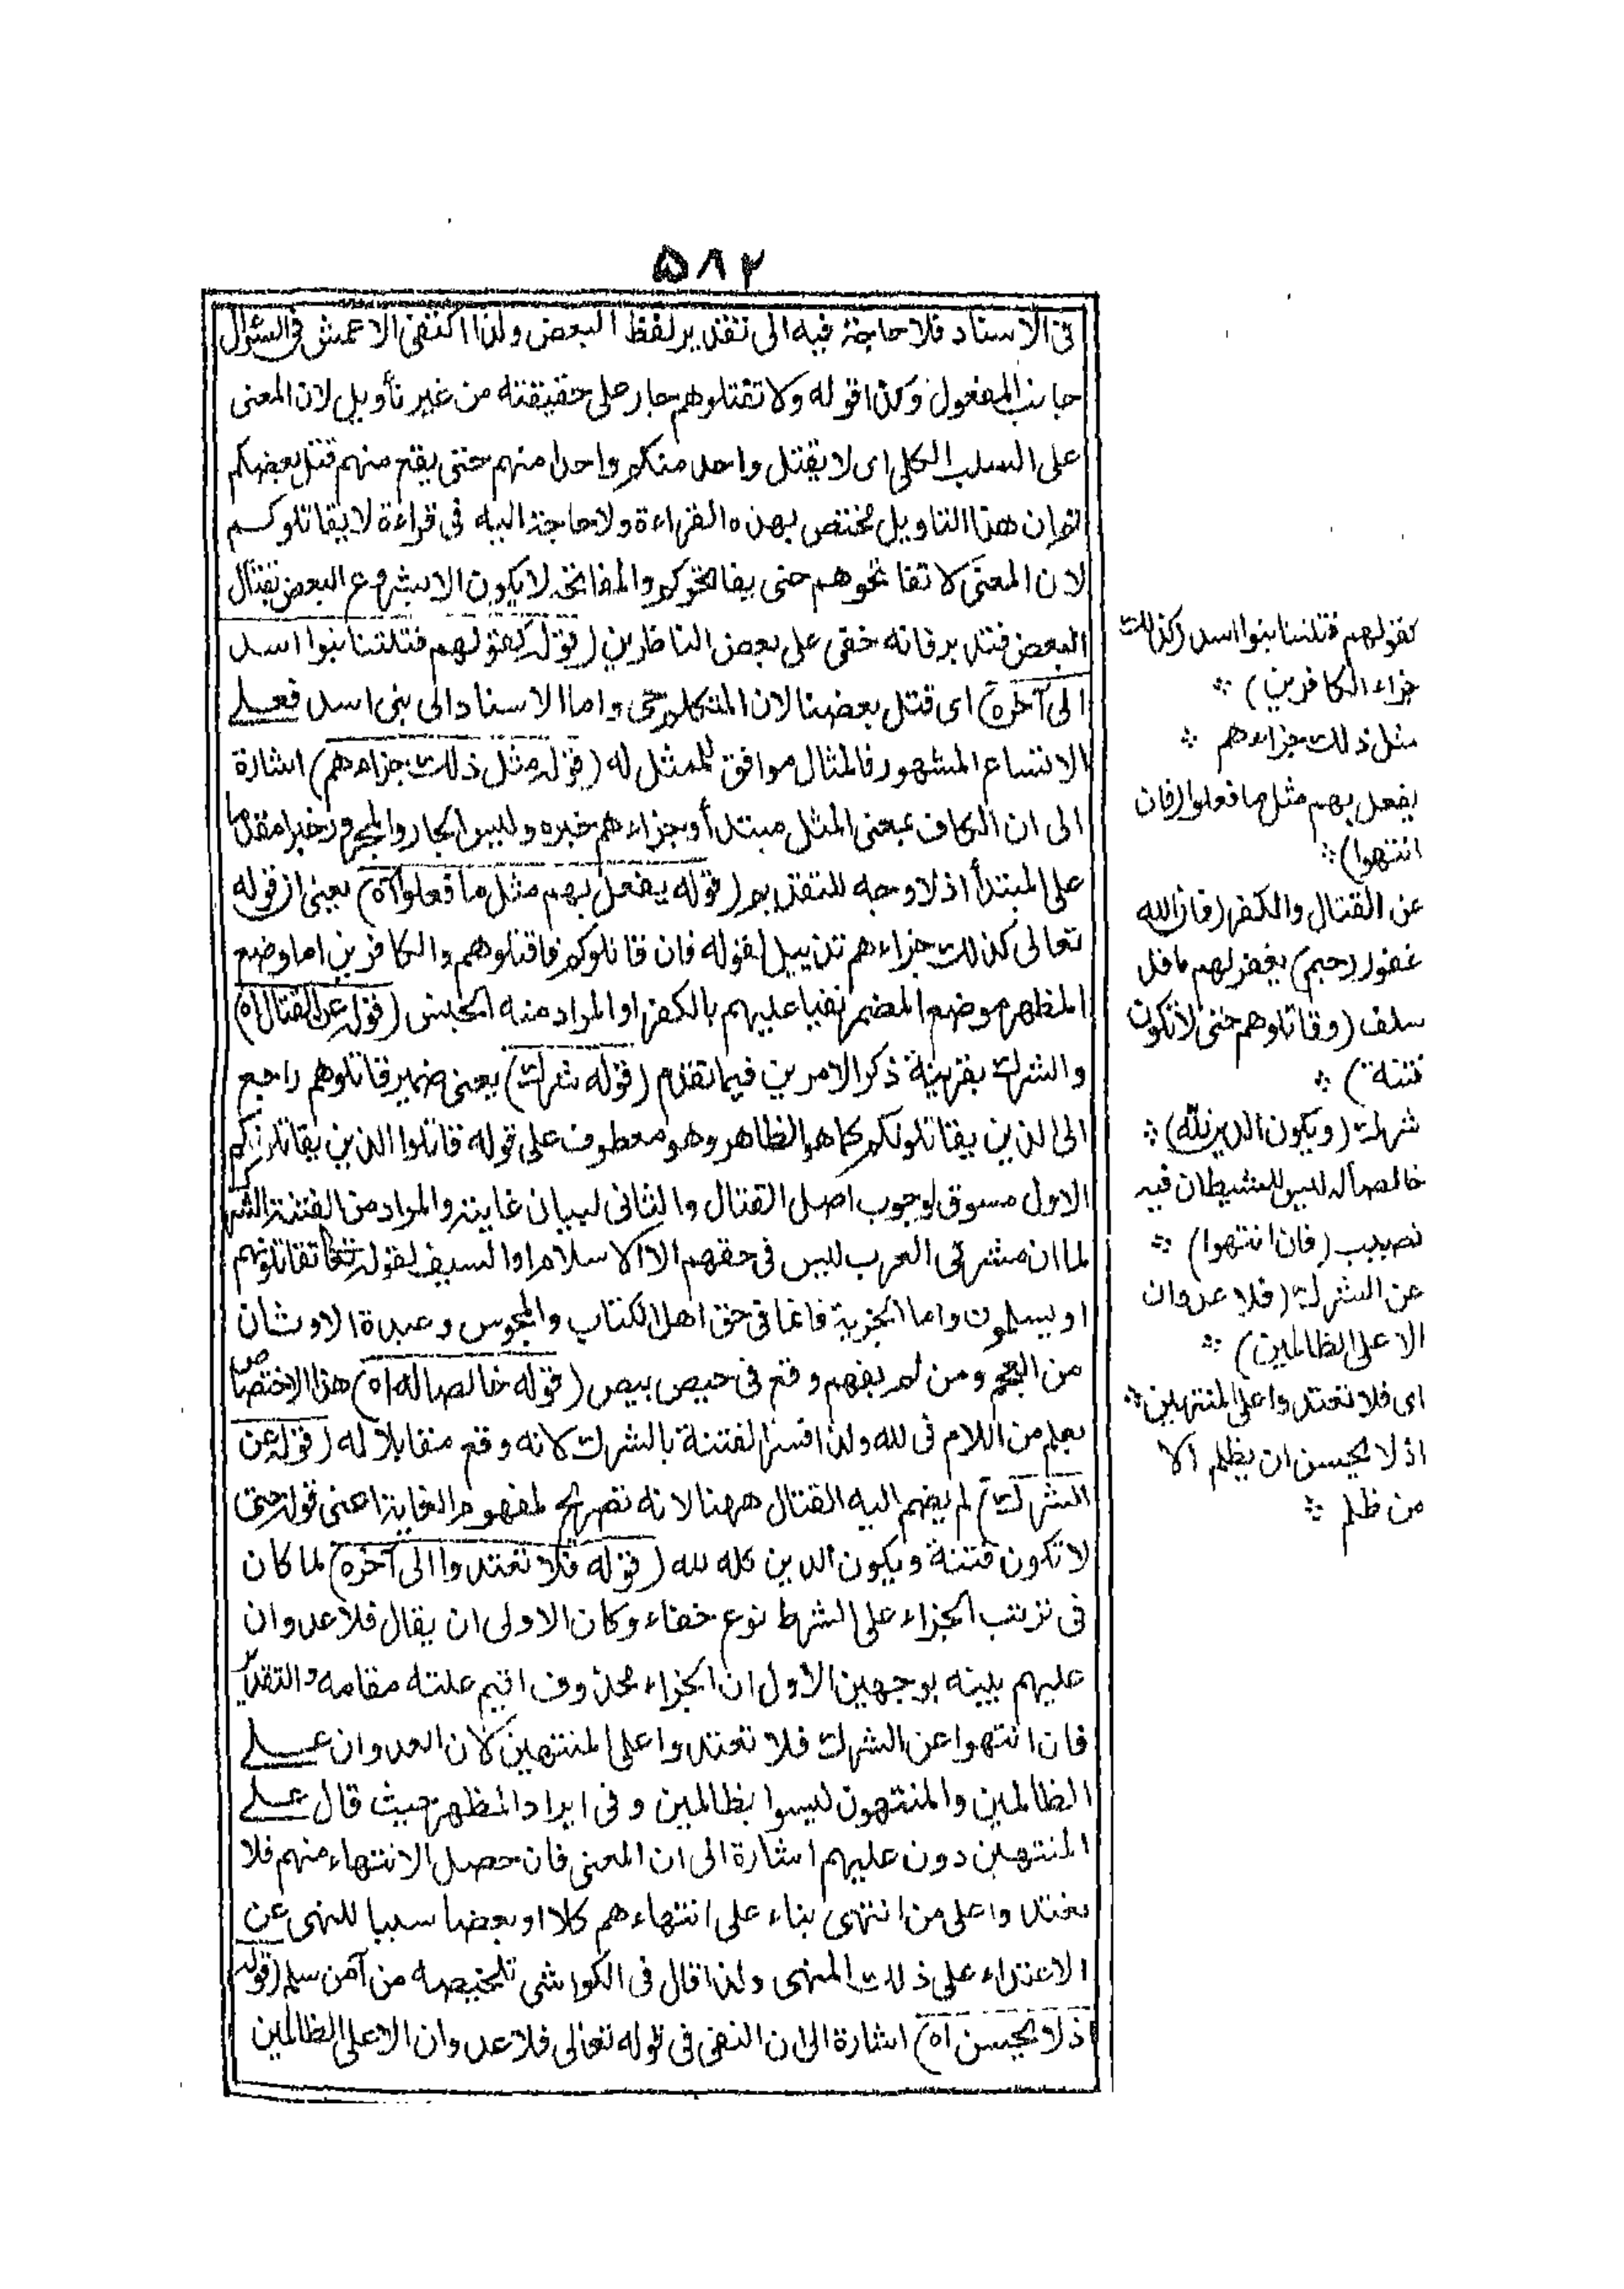 ٥٨٢
فى الاسناد فلا حاجة فيه الى تقدير لفظ البعض ولذا اكتفى الاعمش فى السؤال
جانب المفعول وكذا قوله ولا تقتلوهم جار على حقيقته من غير تأويل لان المعنى
على السلب الكلى اى لا يقتل واحد منكم واحدا منهم حتى يقع منهم قتل بعضكم
ثم ان هذا التاويل مختص بهذه القراءة ولا حاجة اليه فى قراءة لا يقاتلوكم
لان المعنى لا تفاتحوهم حتى يفاتحوكم والمفاتحة لا يكون الا بشروع البعض بقتال
البعض فتدبر فانه خفى على بعض الناظرين (قوله كقولهم قتلتنا بنوا اسد
الى آخره) اى قتل بعضنا لان المتكلم حى واما الاسناد الى بنى اسد فعلى
الاتساع المشهور فالمثال موافق للممثل له (قوله مثل ذلك جزاءهم) اشارة
الى ان الكاف بمعنى المثل مبتدأ وجزاءهم خبره وليس الجار والمجرور خبرا مقدما
على المبتدأ اذ لا وجه للتقديم (قوله يفعل بهم مثل ما فعلوا آه) يعنى ان قوله
تعالى كذلك جزاءهم تذييل لقوله فان قاتلوكم فاقتلوهم والكافرين اما وضع
المظهر موضع المضمر نعيا عليهم بالكفر او المراد منه الجنس (قوله عن القتال اه)
والشرك بقرينة ذكر الامرين فيما تقدم (قوله شرك) يعنى ضمير قاتلوهم راجع
الى الذين يقاتلونكم كما هو الظاهر وهو معطوف على قوله قاتلوا الذين يقاتلونكم
الاول مسوق لوجوب اصل القتال والثانى لبيان غايته والمراد من الفتنة الشرك
لما ان مشركى العرب ليس فى حقهم الا الاسلام او السيف لقوله تعالى تقاتلونهم
او يسلمون واما الجزية فانما فى حق اهل الكتاب والمجوس وعبدة الاوثان
من العجم ومن لم يفهم وقع فى حيص بيص (قوله خالصا له اه) هذا الاختصاص
يعلم من اللام فى لله ولذا فسر الفتنة بالشرك لانه وقع مقابلا له (قوله عن
الشرك) لم يضم اليه القتال ههنا لانه تصريح لمفهوم الغاية اعنى قوله حتى
لا تكون فتنة ويكون الدين كله لله (قوله فلا تعتدوا الى آخره) لما كان
فى ترتب الجزاء على الشرط نوع خفاء وكان الاولى ان يقال فلا عدوان
عليهم بينه بوجهين الاول ان الجزاء محذوف اقيم علته مقامه والتقدير
فان انتهوا عن الشرك فلا تعتدوا على المنتهين لان العدوان على
الظالمين والمنتهون ليسوا بظالمين وفى ايراد المظهر حيث قال على
المنتهين دون عليهم اشارة الى ان المعنى فان حصل الانتهاء منهم فلا
تعتدوا على من انتهى بناء على انتهاءهم كلا او بعضا سببا للنهى عن
الاعتداء على ذلك المنهى ولذا قال فى الكواشى تلخيصه من آمن سلم (قوله
اذ لا يحسن اه) اشارة الى ان النفى فى قوله تعالى فلا عدوان الا على الظالمين
كقولهم قتلتنا بنوا اسد (كذلك
جزاء الكافرين)
مثل ذلك جزاءهم
يفعل بهم مثل ما فعلوا (فان
انتهوا)
عن القتال والكفر (فان الله
غفور رحيم) يغفر لهم ما قد
سلف (وقاتلوهم حتى لا تكون
فتنة)
شرك (ويكون الدين لله)
خالصا له ليس للشيطان فيه
نصيب (فان انتهوا)
عن الشرك (فلا عدوان
الا على الظالمين)
اى فلا تعتدوا على المنتهين
اذ لا يحسن ان يظلم الا
من ظلم